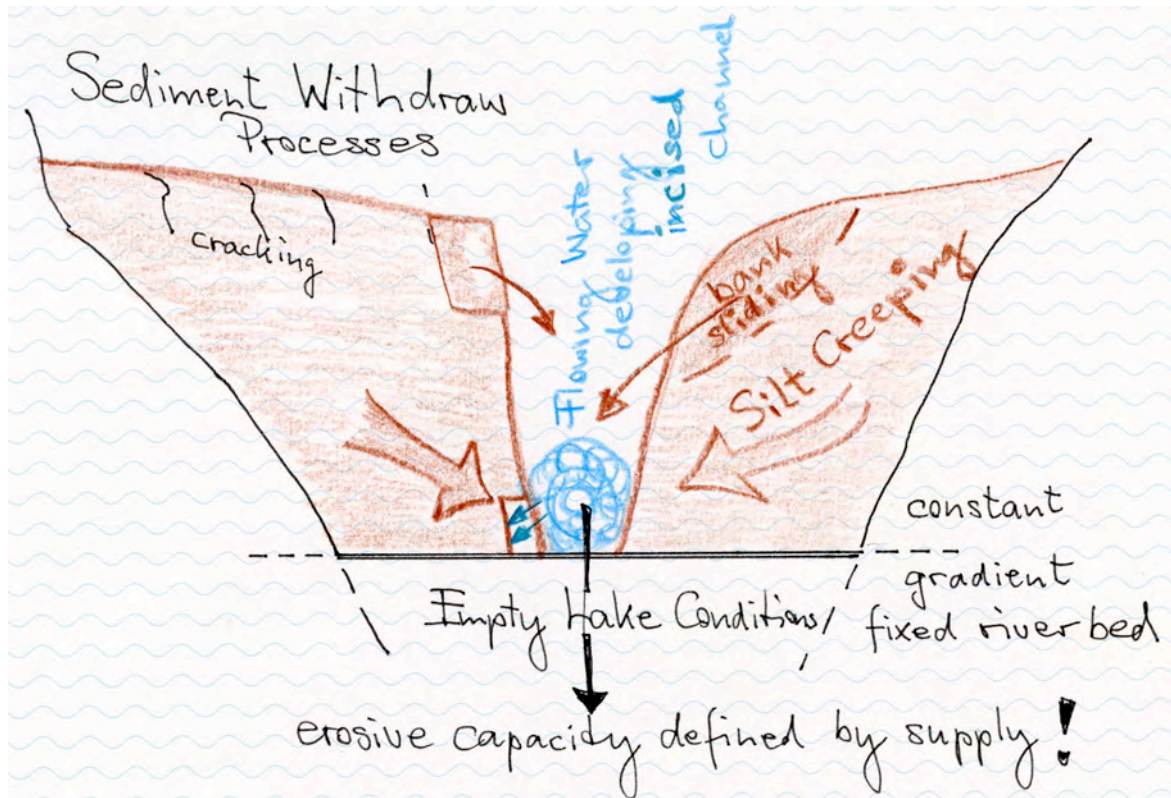 Sediment Withdraw
Processes
cracking
Flowing Water
developing
incised
channel
bank
sliding
Silt Creeping
constant
gradient
fixed river bed
Empty Lake Conditions/
erosive capacity defined by supply!